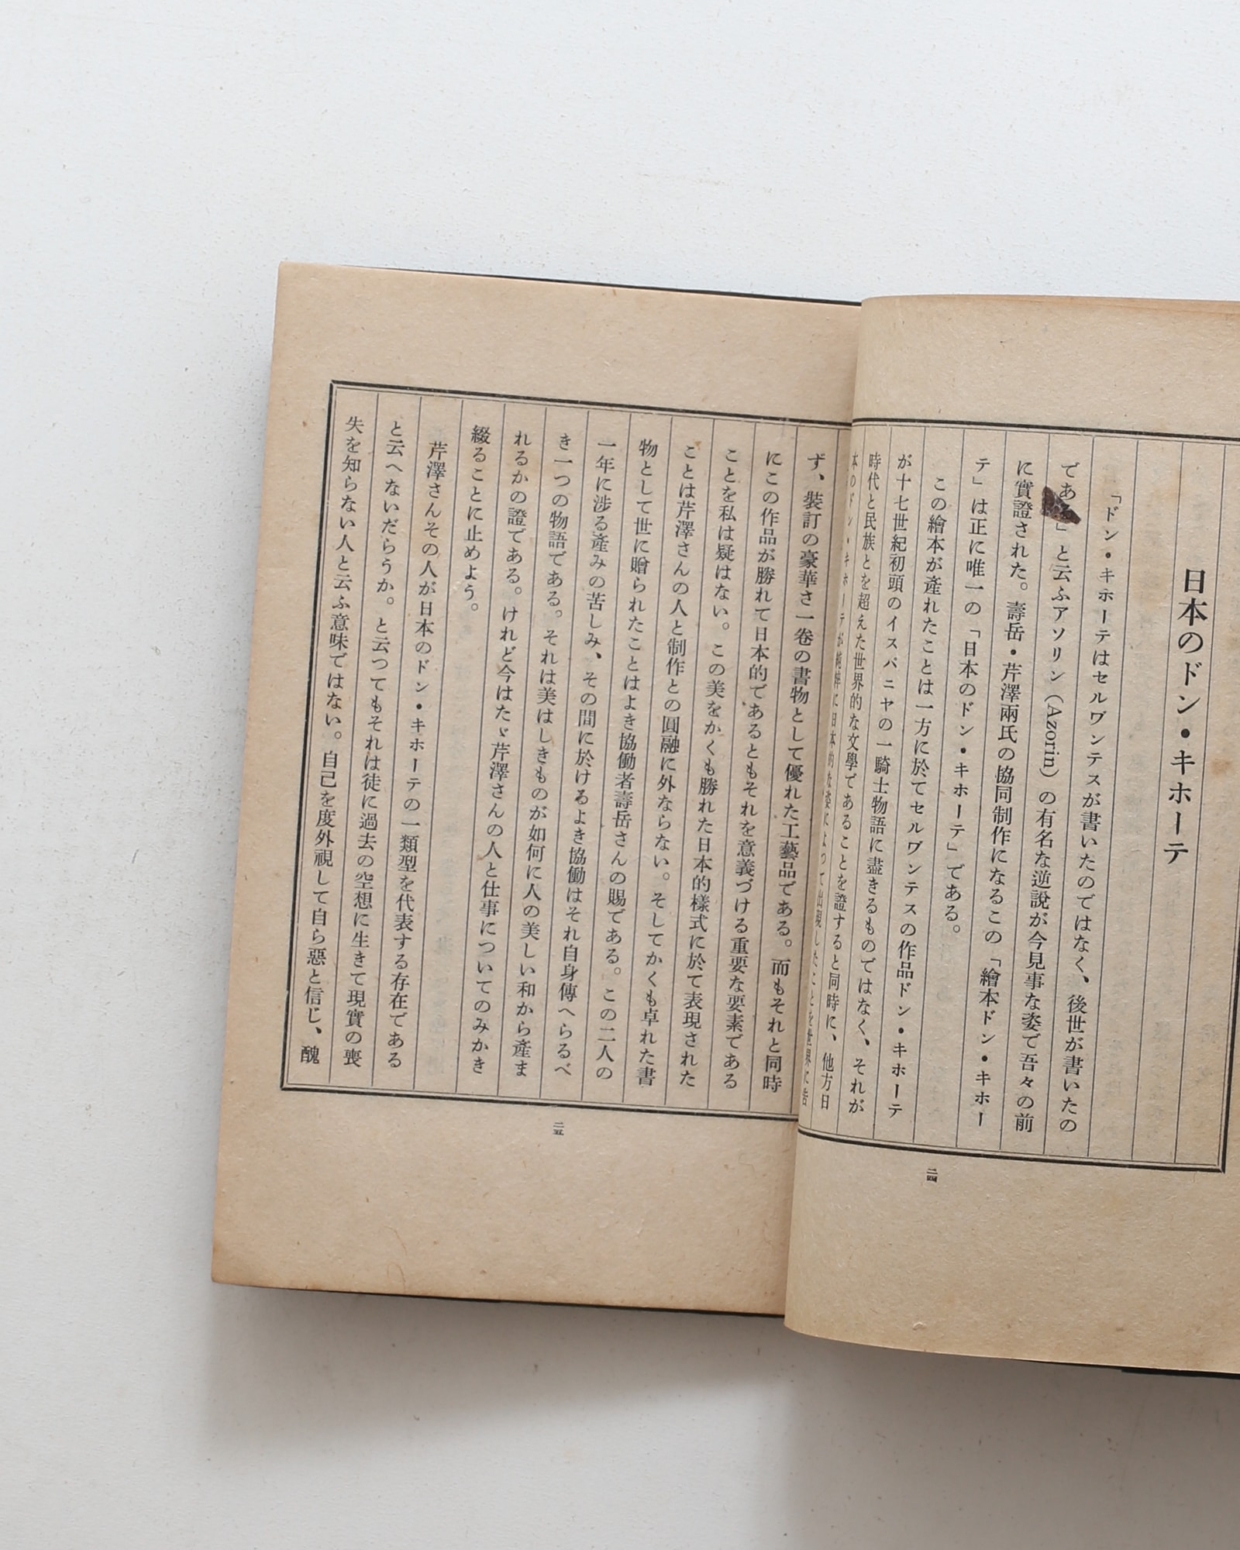 日本のドン・キホーテ
「ドン・キホーテはセルヴンテスが書いたのではなく、後世が書いたの
であ」と云ふアソリン（Azorin）の有名な逆説が今見事な姿で吾々の前
に實證された。壽岳・芹澤兩氏の協同制作になるこの「繪本ドン・キホー
テ」は正に唯一の「日本のドン・キホーテ」である。
この繪本が產れたことは一方に於てセルヴンテスの作品ドン・キホーテ
が十七世紀初頭のイスパニヤの一騎士物語に盡きるものではなく、それが
時代と民族とを超えた世界的な文學であることを證すると同時に、他方日
本のドン・キホーテが純粹に日本的な姿によつて出現したことを世界に告
二四
ず、裝訂の豪華さ一卷の書物として優れた工藝品である。而もそれと同時
にこの作品が勝れて日本的であるともそれを意義づける重要な要素である
ことを私は疑はない。この美をかくも勝れた日本的樣式に於て表現された
ことは芹澤さんの人と制作との圓融に外ならない。そしてかくも卓れた書
物として世に贈られたことはよき協働者壽岳さんの賜である。この二人の
一年に涉る產みの苦しみ、その間に於けるよき協働はそれ自身傳へらるべ
き一つの物語である。それは美はしきものが如何に人の美しい和から產ま
れるかの證である。けれど今はたゞ芹澤さんの人と仕事についてのみかき
綴ることに止めよう。
芹澤さんその人が日本のドン・キホーテの一類型を代表する存在である
と云へないだらうか。と云つてもそれは徒に過去の空想に生きて現實の喪
失を知らない人と云ふ意味ではない。自己を度外視して自ら惡と信じ、醜
二五